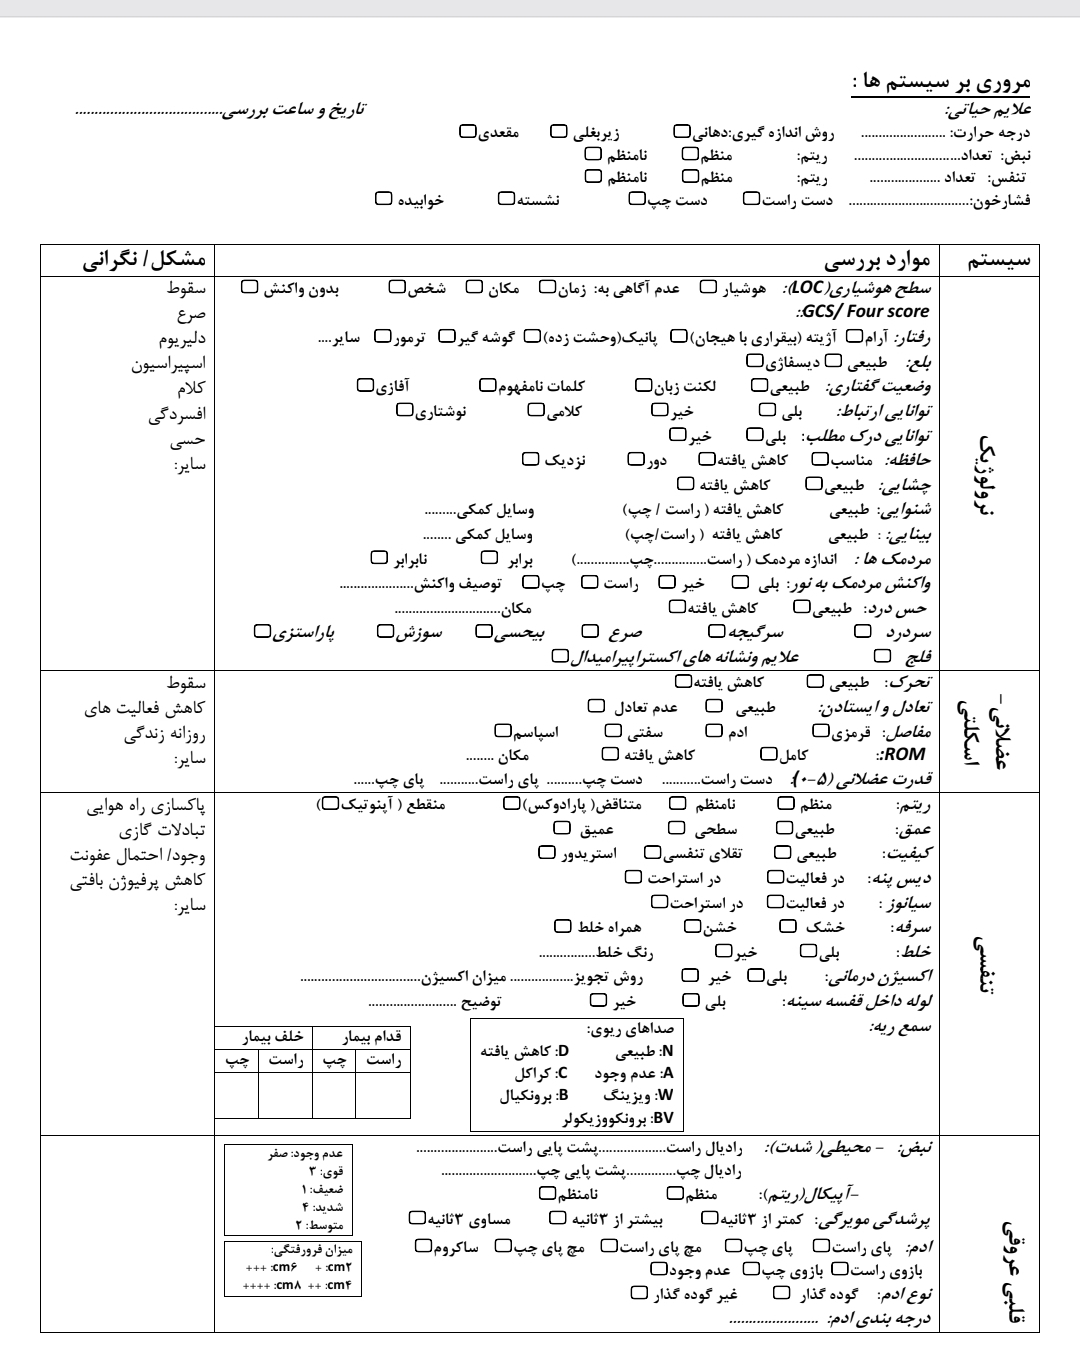 مروری بر سیستم ها :
علایم حیاتی: تاریخ و ساعت بررسی.....................................
درجه حرارت: ........................ روش اندازه گیری:دهانی☐ زیربغلی ☐ مقعدی☐
نبض: تعداد.............................. ریتم: منظم☐ نامنظم ☐
تنفس: تعداد .................... ریتم: منظم☐ نامنظم ☐
فشارخون:.................................. دست راست☐ دست چپ☐ نشسته☐ خوابیده ☐
سیستم موارد بررسی مشکل/ نگرانی
نرولوژیک
سطح هوشیاری(LOC): هوشیار ☐ عدم آگاهی به: زمان☐ مکان ☐ شخص☐ بدون واکنش ☐
GCS/ Four score:
رفتار: آرام☐ آژیته (بیقراری با هیجان)☐ پانیک(وحشت زده)☐ گوشه گیر☐ ترمور☐ سایر....
بلع: طبیعی ☐ دیسفاژی☐
وضعیت گفتاری: طبیعی☐ لکنت زبان☐ کلمات نامفهوم☐ آفازی☐
توانایی ارتباط: بلی ☐ خیر☐ کلامی☐ نوشتاری☐
توانایی درک مطلب: بلی☐ خیر☐
حافظه: مناسب☐ کاهش یافته☐ دور☐ نزدیک ☐
چشایی: طبیعی☐ کاهش یافته ☐
شنوایی: طبیعی کاهش یافته ( راست / چپ) وسایل کمکی.........
بینایی: : طبیعی کاهش یافته ( راست/چپ) وسایل کمکی ........
مردمک ها : اندازه مردمک ( راست...............چپ...............) برابر ☐ نابرابر ☐
واکنش مردمک به نور: بلی ☐ خیر ☐ راست ☐ چپ☐ توصیف واکنش.....................
حس درد: طبیعی☐ کاهش یافته☐ مکان..............................
سردرد ☐ سرگیجه☐ صرع ☐ بیحسی☐ سوزش☐ پاراستزی☐
فلج ☐ علایم ونشانه های اکستراپیرامیدال☐
سقوط
صرع
دلیریوم
اسپیراسیون
کلام
افسردگی
حسی
سایر:
عضلانی –
اسکلتی
تحرک: طبیعی ☐ کاهش یافته☐
تعادل و ایستادن: طبیعی ☐ عدم تعادل ☐
مفاصل: قرمزی☐ ادم ☐ سفتی ☐ اسپاسم☐
ROM: کامل☐ کاهش یافته ☐ مکان ........
قدرت عضلانی (۵-۰): دست راست........... دست چپ.......... پای راست........... پای چپ......
سقوط
کاهش فعالیت های
روزانه زندگی
سایر:
تنفسی
ریتم: منظم ☐ نامنظم ☐ متناقض( پارادوکس)☐ منقطع ( آپنوتیک☐)
عمق: طبیعی☐ سطحی ☐ عمیق ☐
کیفیت: طبیعی ☐ تقلای تنفسی☐ استریدور ☐
دیس پنه: در فعالیت☐ در استراحت ☐
سیانوز : در فعالیت☐ در استراحت☐
سرفه: خشک ☐ خشن☐ همراه خلط ☐
خلط: بلی☐ خیر☐ رنگ خلط................
اکسیژن درمانی: بلی☐ خیر ☐ روش تجویز.................. میزان اکسیژن..................................
لوله داخل قفسه سینه: بلی ☐ خیر ☐ توضیح .........................
سمع ریه:
صداهای ریوی:
N: طبیعی D: کاهش یافته
A: عدم وجود C: کراکل
W: ویزینگ B: برونکیال
BV: برونکووزیکولر
قدام بیمار خلف بیمار
راست چپ راست چپ
پاکسازی راه هوایی
تبادلات گازی
وجود/ احتمال عفونت
کاهش پرفیوژن بافتی
سایر:
قلبی عروقی
نبض: – محیطی( شدت): رادیال راست...................پشت پایی راست.......................
رادیال چپ..............پشت پایی چپ...........................
–آپیکال(ریتم): منظم☐ نامنظم☐
پرشدگی مویرگی: کمتر از ۳ثانیه☐ بیشتر از ۳ثانیه ☐ مساوی ۳ثانیه☐
ادم: پای راست☐ پای چپ☐ مچ پای راست☐ مچ پای چپ☐ ساکروم☐
بازوی راست☐ بازوی چپ☐ عدم وجود☐
نوع ادم: گوده گذار ☐ غیر گوده گذار ☐
درجه بندی ادم: .......................
عدم وجود: صفر
قوی: ۳
ضعیف: ۱
شدید: ۴
متوسط: ۲
میزان فرورفتگی:
cm۲: + cm۶: +++
cm۴: ++ cm۸: ++++